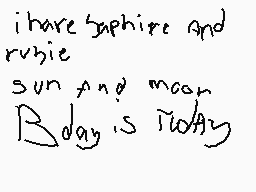 i have saphire And
rubie
sun And moon
B day is Today